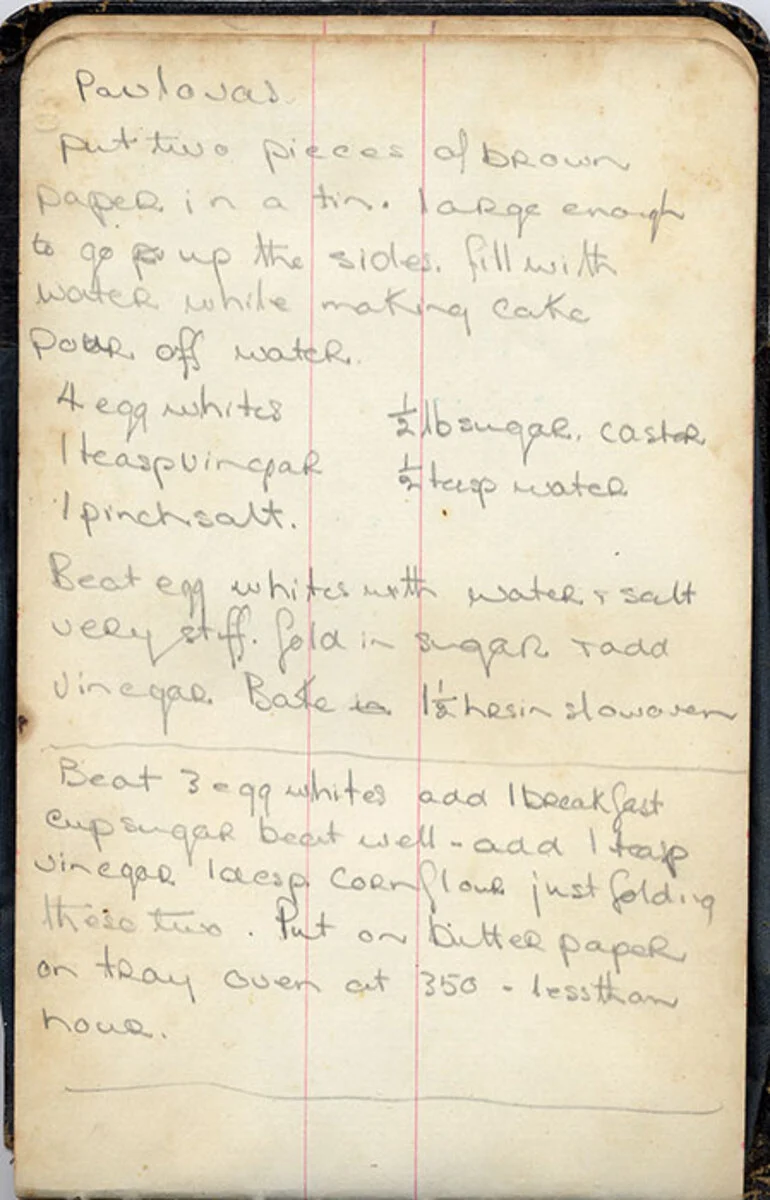 Pavlovas
Put two pieces of brown
paper in a tin. large enough
to go up the sides. fill with
water while making cake
Pour off water.
4 egg whites ½ lb sugar. castor
1 teasp vinegar ½ teasp water
1 pinch salt.
Beat egg whites with water & salt
very stiff. fold in sugar & add
vinegar. Bake 1½ hrs in slow oven
Beat 3 egg whites add 1 breakfast
cup sugar beat well - add 1 teasp
vinegar 1 desp. cornflour just folding
these two. Put on butter paper
on tray oven at 350 - less than
hour.